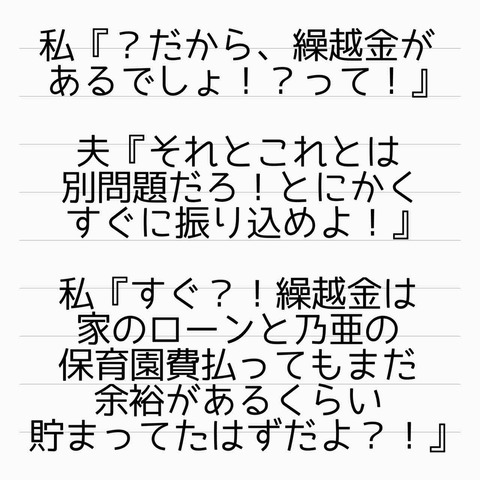 私『？だから、繰越金が
あるでしょ！？って！』
夫『それとこれとは
別問題だろ！とにかく
すぐに振り込めよ！』
私『すぐ？！繰越金は
家のローンと乃亜の
保育園費払ってもまだ
余裕があるくらい
貯まってたはずだよ？！』